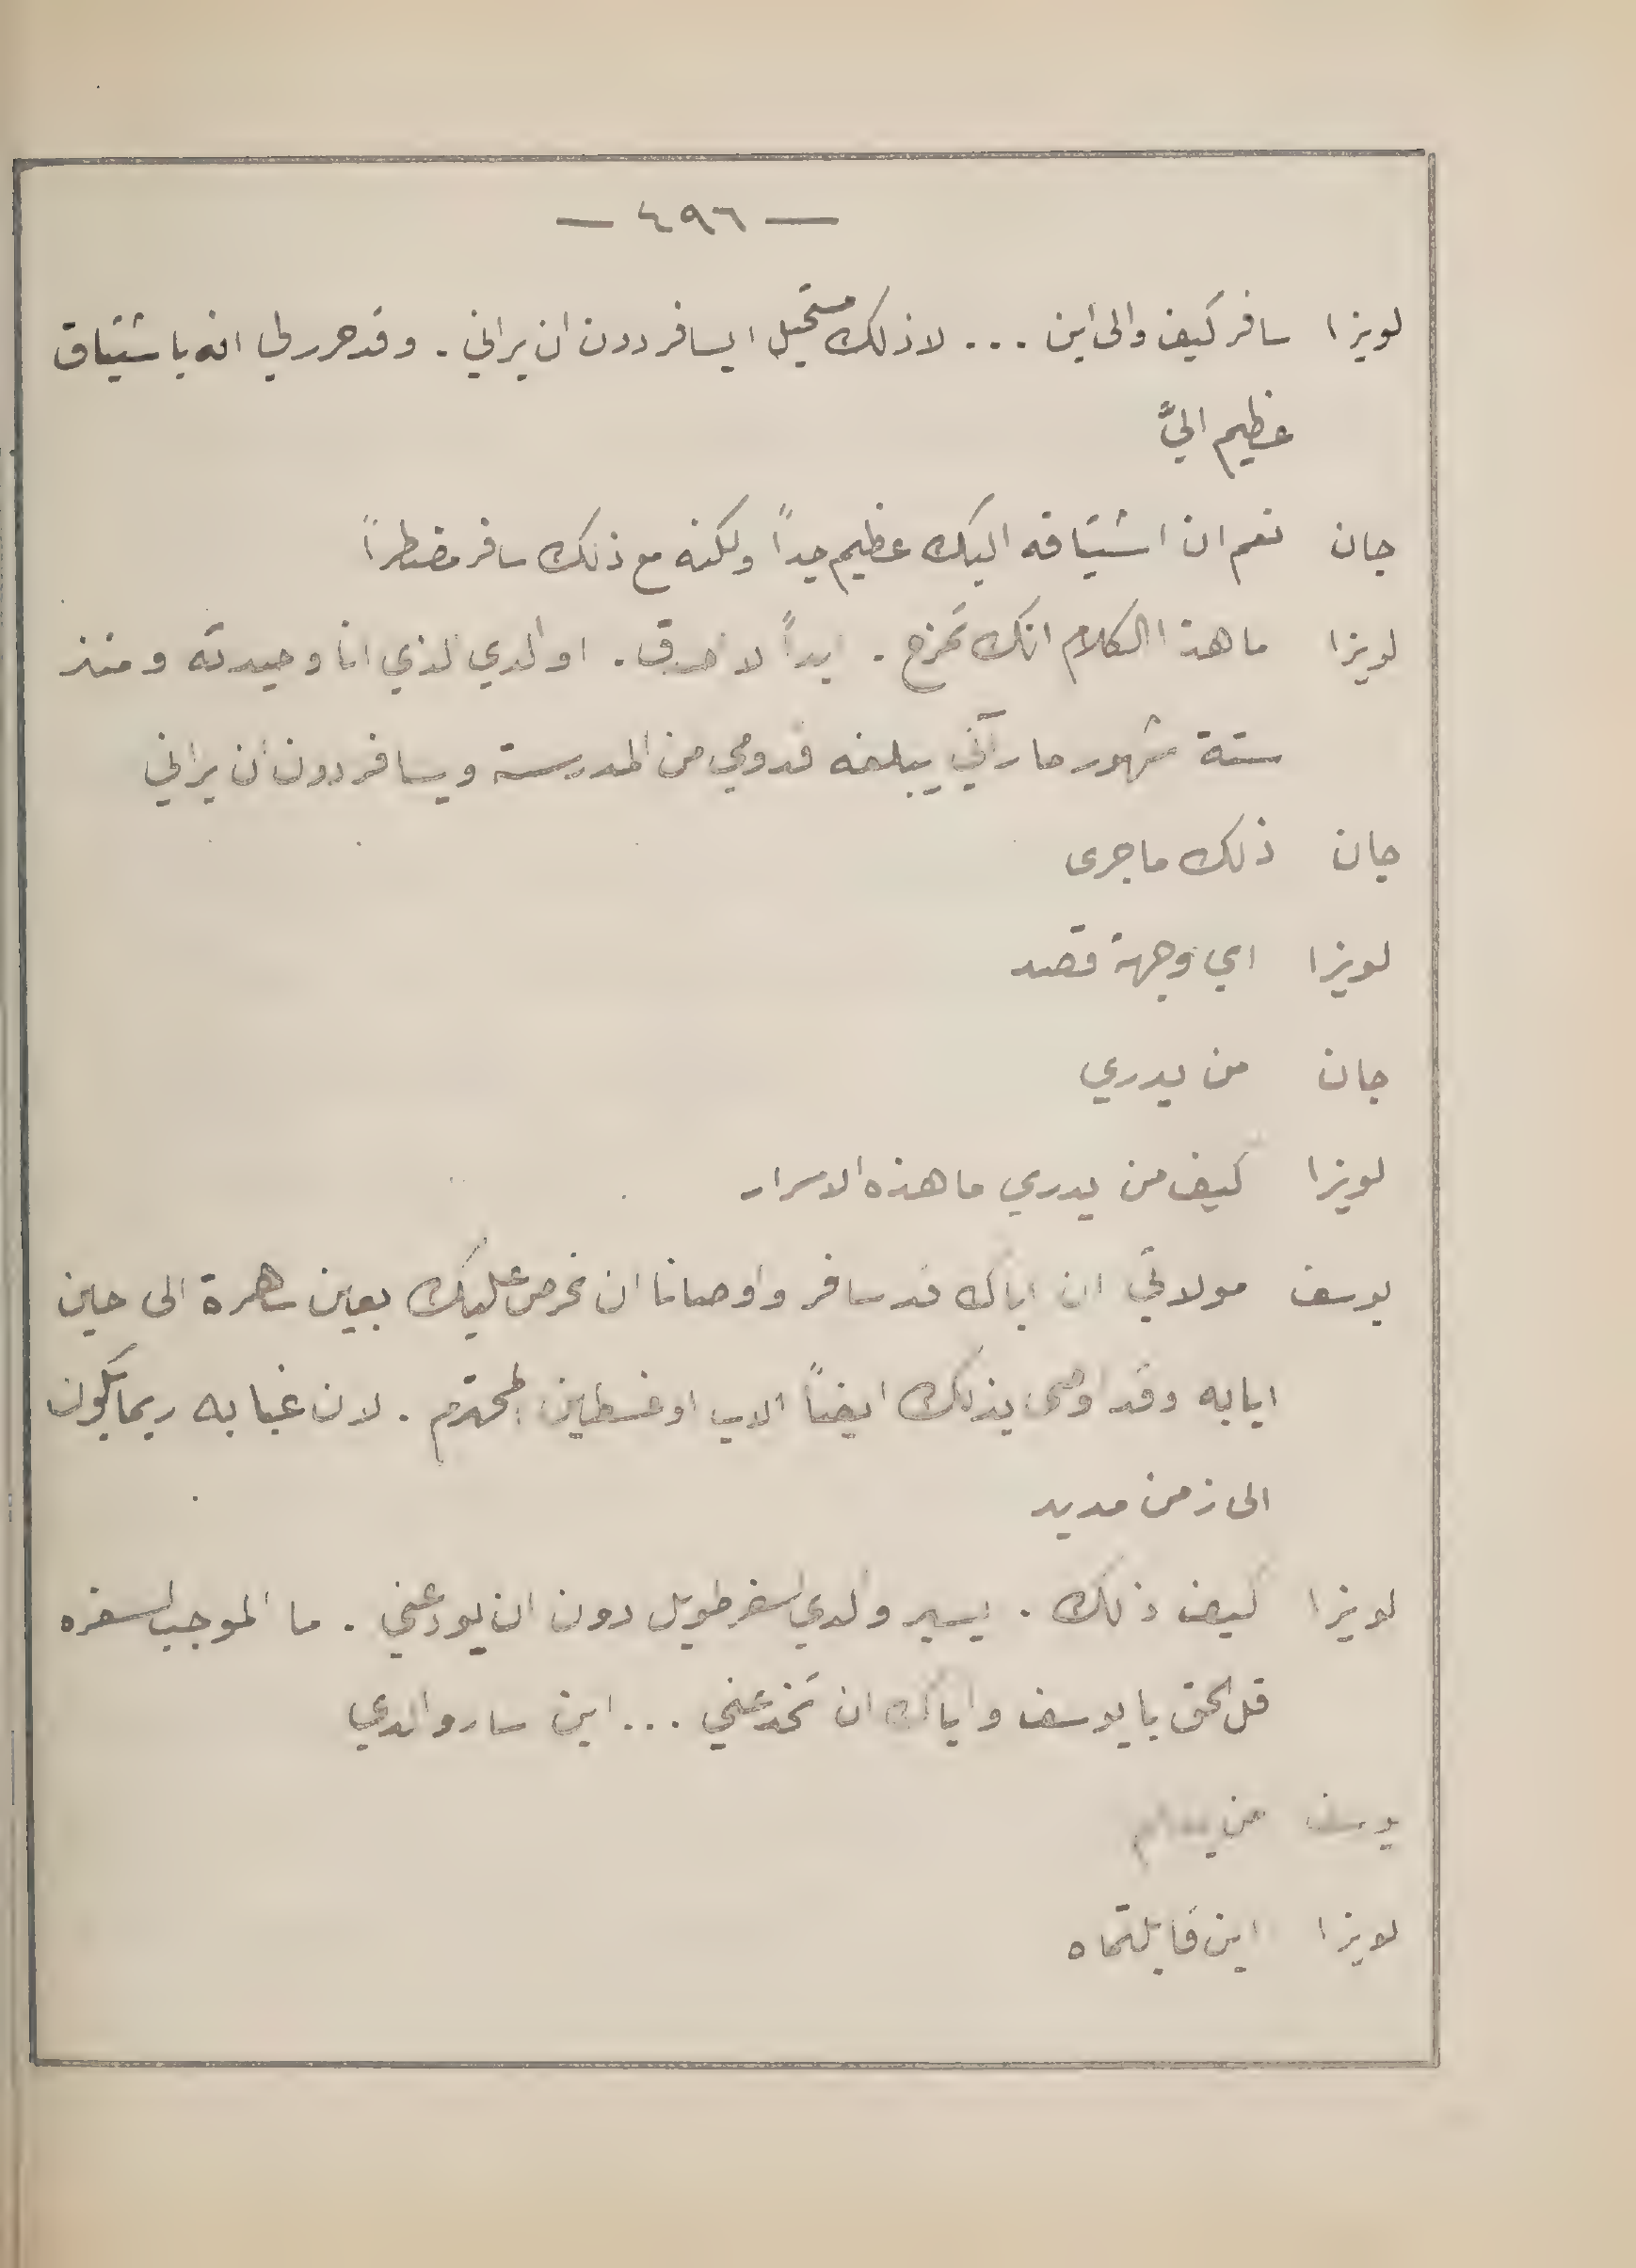 — ٤٩٦ —
لويزا سافر كيف والى اين ... لا ذلك مستحيل ايسافر دون ان يراني . وقد حرر لي انه باشتياق
عظيم اليَّ
جان نعم ان اشتياقه اليك عظيم جداً ولكنه مع ذلك سافر مضطراً
لويزا ما هذا الكلام انك تمزح . ابداً لا اصدق . اوالدي الذي انا وحيدته ومنذ
ستة شهور ما رآني يبلغه قدومي من المدرسة ويسافر دون ان يراني
جان ذلك ما جرى
لويزا اي وجهة قصد
جان من يدري
لويزا كيف من يدري ما هذه الاسرار
يوسف مولاتي ان اباك قد سافر واوصانا ان نحرص عليك بعين ساهرة الى حين
ايابه وقد اوصى بذلك ايضاً الاب اوغسطين المحترم . لان غيابه ربما يكون
الى زمن مديد
لويزا كيف ذلك . يسير والدي لسفر طويل دون ان يودعني . ما الموجب لسفره
قل الحق يا يوسف واياك ان تخدعني ... اين سار والدي
يوسف من
لويزا اين قابلتماه